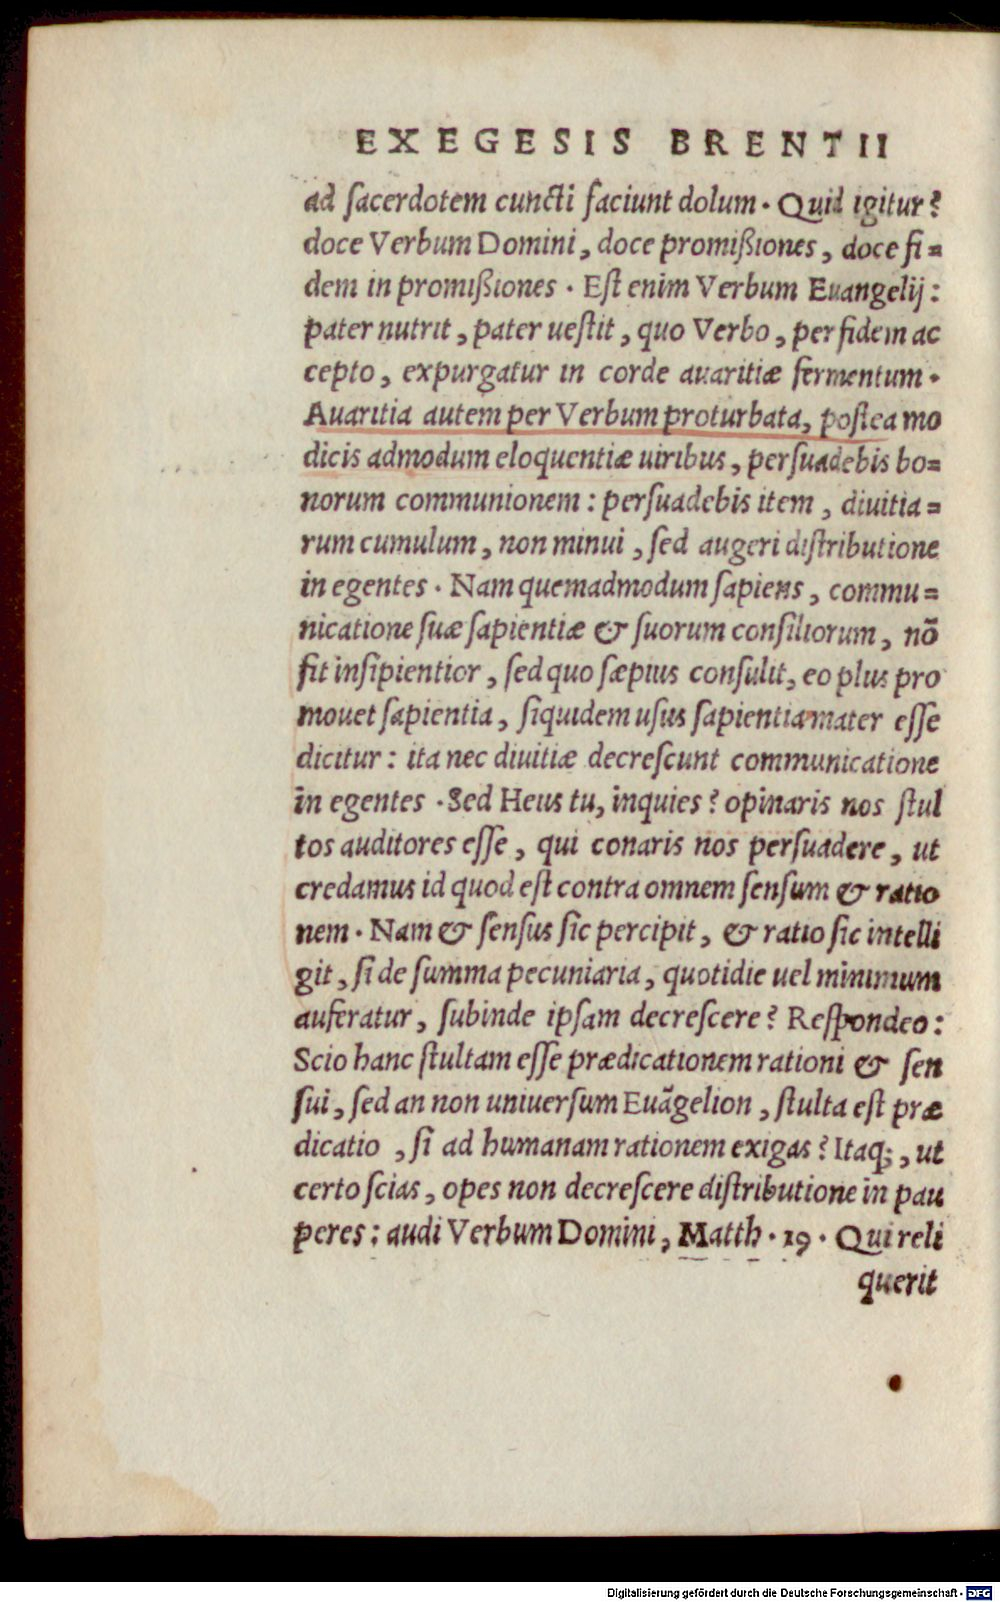 EXEGESIS BRENTII
ad ſacerdotem cuncti faciunt dolum. Quid igitur?
doce Verbum Domini, doce promißiones, doce fi=
dem in promißiones. Eſt enim Verbum Euangelij:
pater nutrit, pater ueſtit, quo Verbo, per fidem ac
cepto, expurgatur in corde auaritiæ fermentum.
Auaritia autem per Verbum proturbata, poſtea mo
dicis admodum eloquentiæ uiribus, perſuadebis bo=
norum communionem: perſuadebis item, diuitia=
rum cumulum, non minui, ſed augeri diſtributione
in egentes. Nam quemadmodum ſapiens, commu=
nicatione ſuæ ſapientiæ & ſuorum conſiliorum, nõ
fit inſipientior, ſed quo ſæpius conſulit, eo plus pro
mouet ſapientia, ſiquidem uſus ſapientiæ mater eſſe
dicitur: ita nec diuitiæ decreſcunt communicatione
in egentes. Sed Heus tu, inquies? opinaris nos ſtul
tos auditores eſſe, qui conaris nos perſuadere, ut
credamus id quod eſt contra omnem ſenſum & ratio
nem. Nam & ſenſus ſic percipit, & ratio ſic intelli
git, ſi de ſumma pecuniaria, quotidie uel minimum
auferatur, ſubinde ipſam decreſcere? Reſpondeo:
Scio hanc ſtultam eſſe prædicationem rationi & ſen
ſui, ſed an non uniuerſum Euãgelion, ſtulta eſt præ
dicatio, ſi ad humanam rationem exigas? Itaq;, ut
certo ſcias, opes non decreſcere diſtributione in pau
peres: audi Verbum Domini, Matth. 19. Qui reli
querit
Digitalisierung gefördert durch die Deutsche Forschungsgemeinschaft - DFG